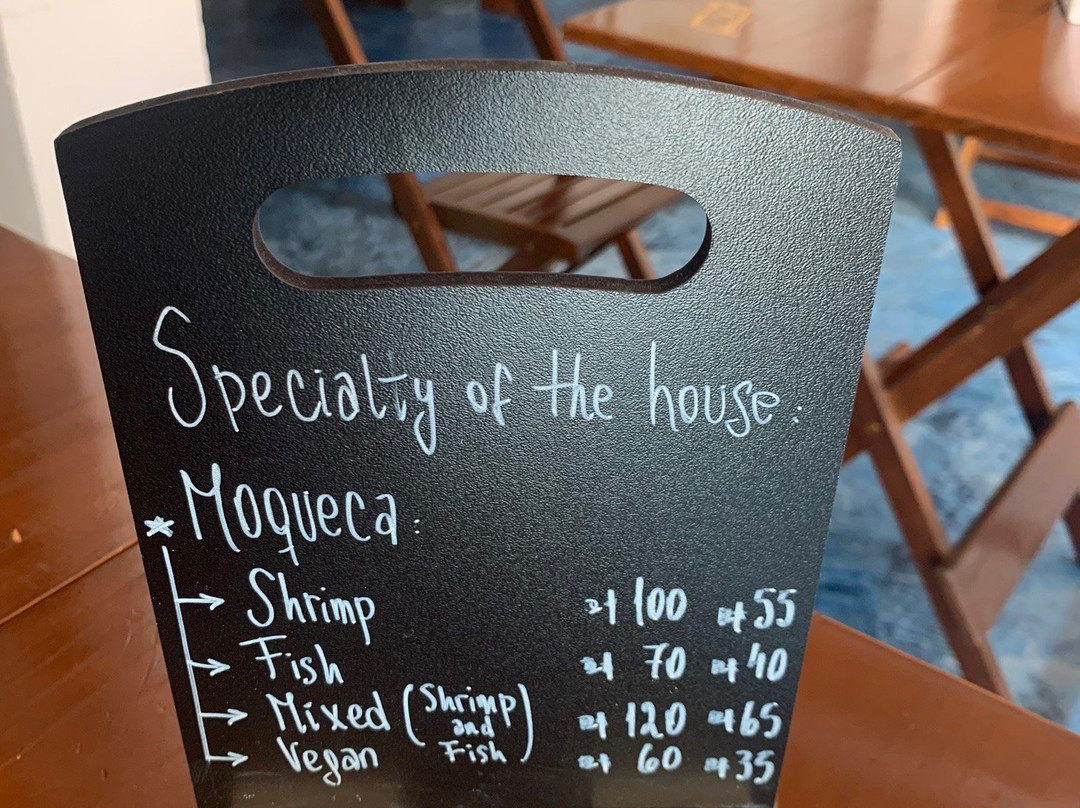 Specialty of the house:
* Moqueca:
→ Shrimp zł 100 zł 55
→ Fish zł 70 zł 40
→ Mixed (Shrimp and Fish) zł 120 zł 65
→ Vegan zł 60 zł 35